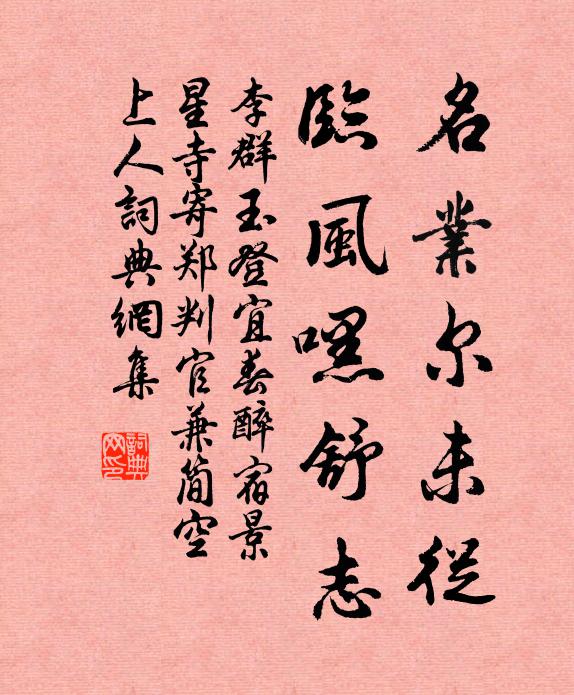 名業尔未從
臨風嘿舒志
李群玉登宜春醉宿景
星寺寄郑判官兼簡空
上人詞典網集
詞典
网印